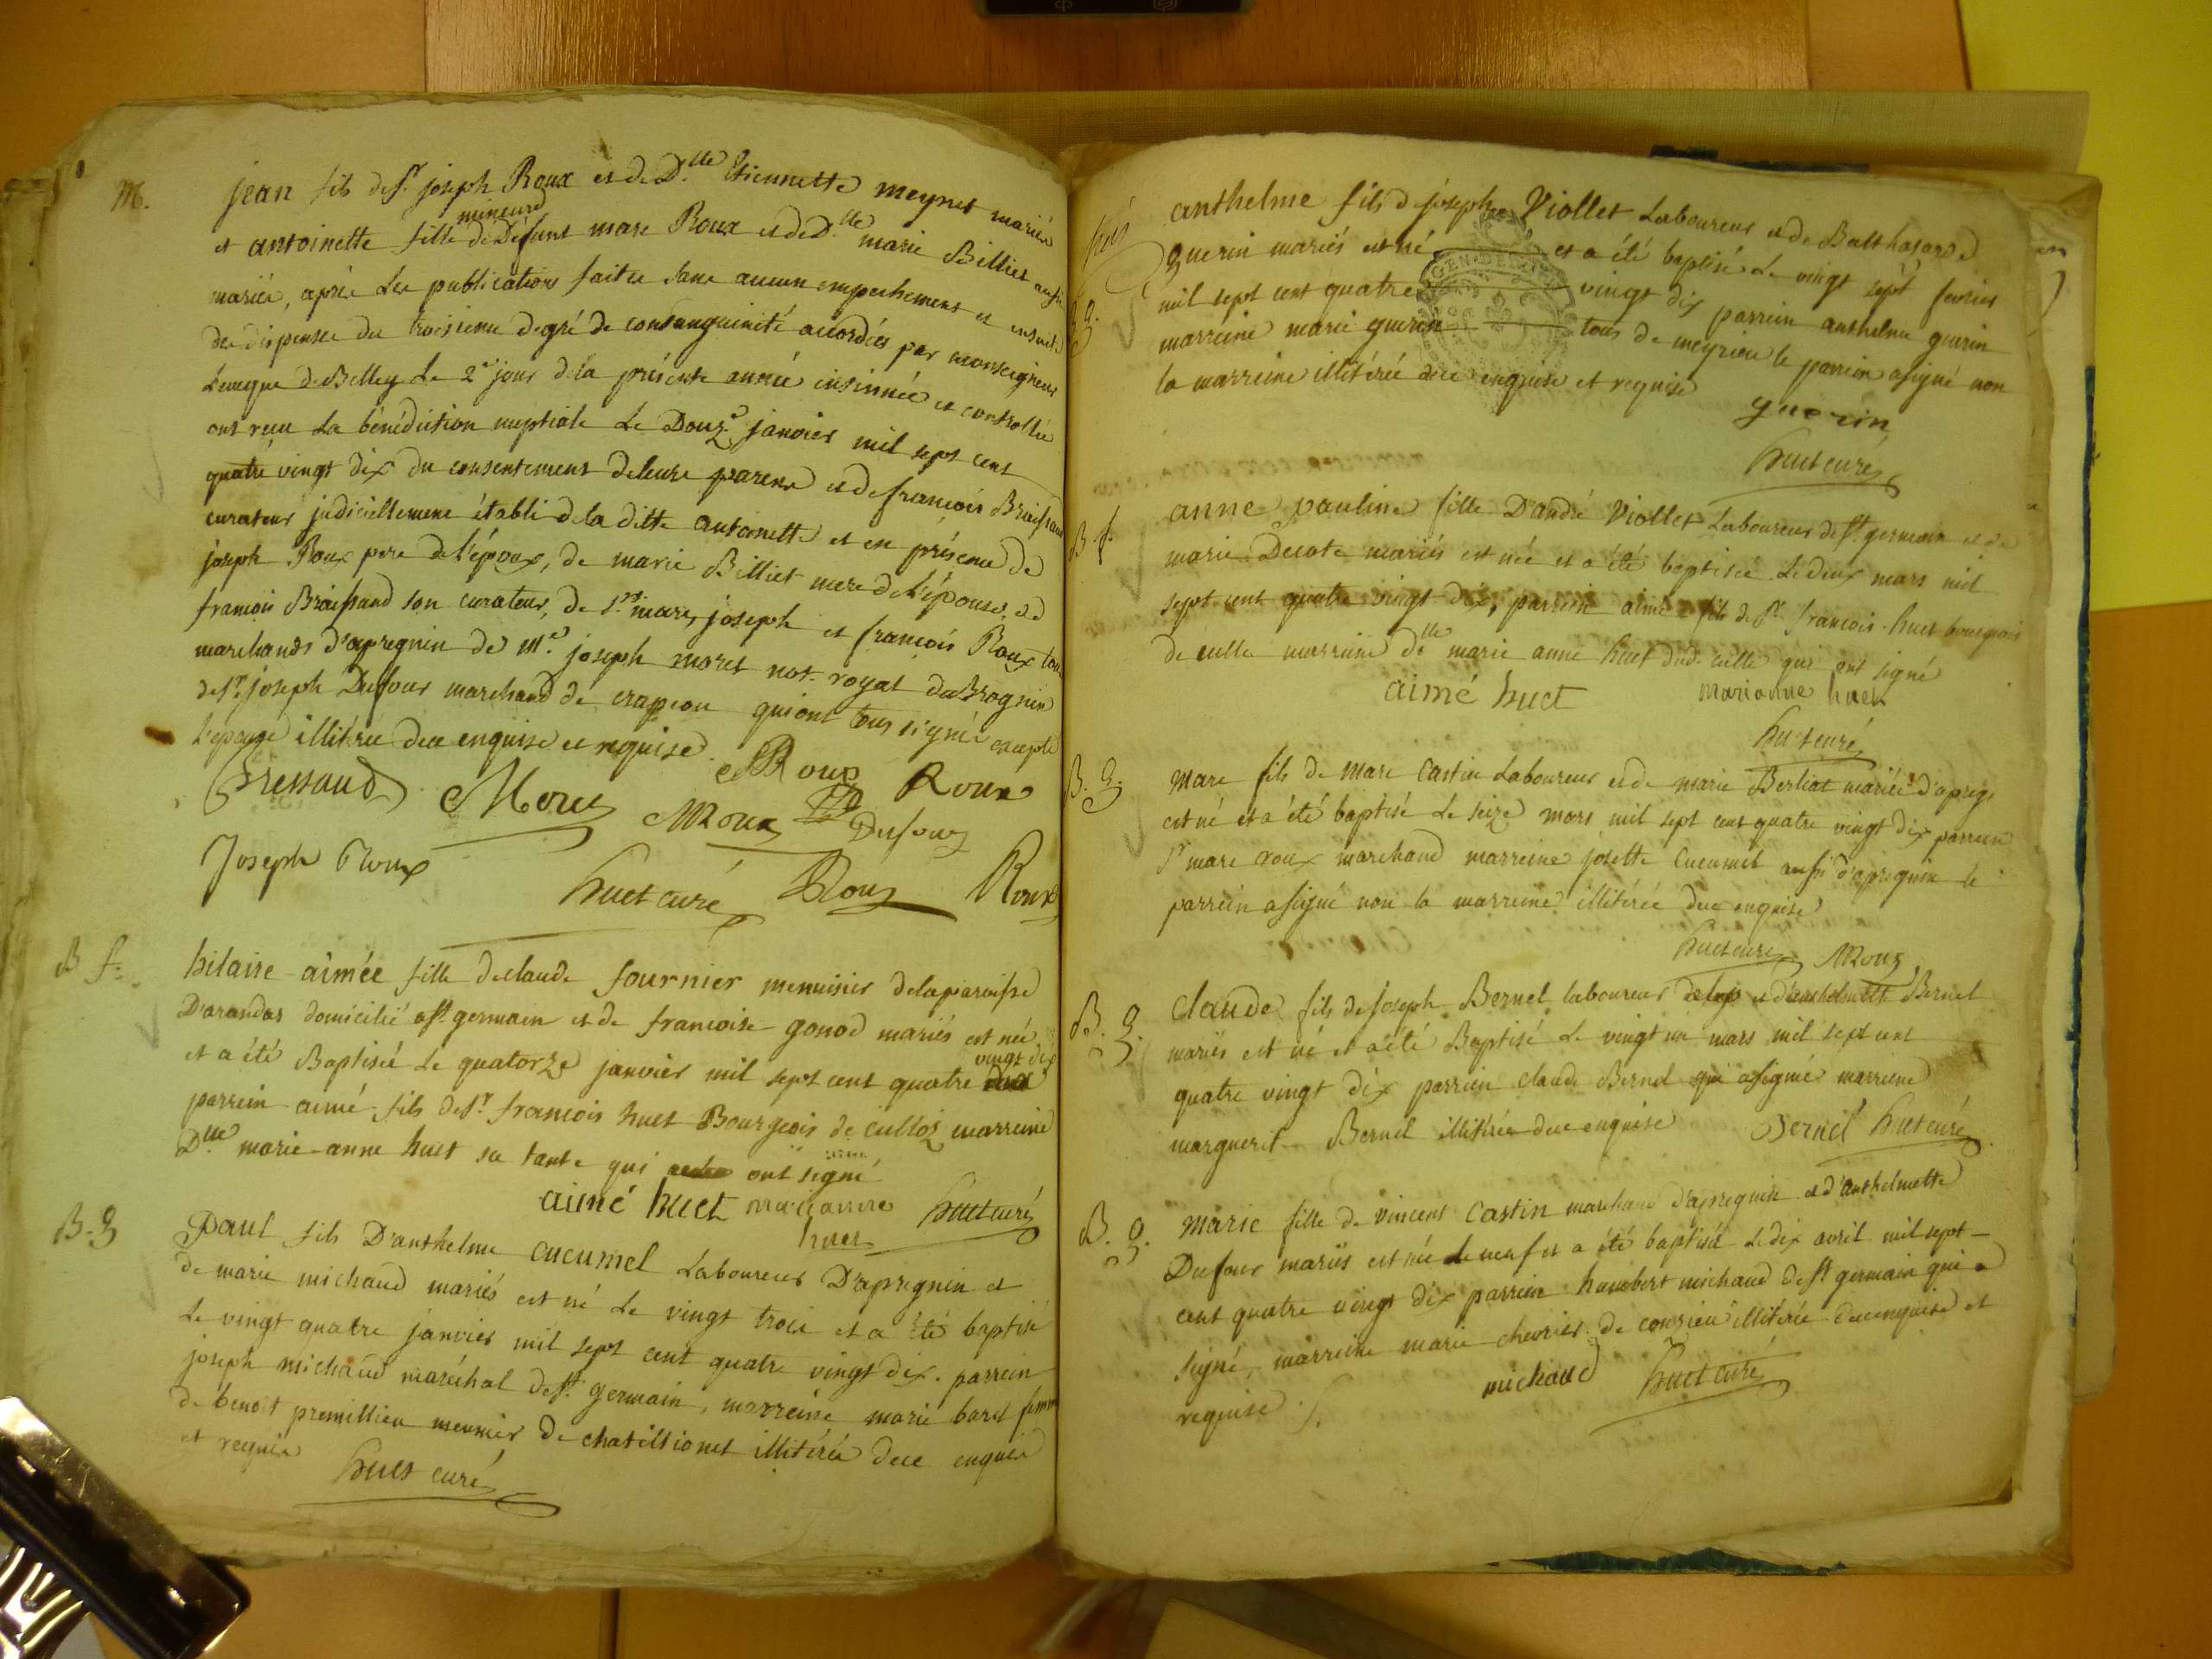 M.
jean fils de Sr. joseph Roux et de Dlle Etiennette meynet mariés
et antoinette fille mineure de Defunt marc Roux et de Dlle marie Billiet aussi
mariés, après les publications faites sans aucun empechement et ensuite
des dispenses du troisieme degré de consanguinité accordées par monseigneur
L'eveque de Belley Le 2e jour de la présente année insinnée et controllée
ont reçu La bénédiction nuptiale Le Douze janvier mil sept cent
quatre vingt dix du consentement de leurs parens et de francois Braissaud
curateur judiciellement établi de la ditte antoinette et en présence de
joseph Roux pere de l'époux, de marie Billiet mere de l'épouse, et de
francois Braissaud son curateur, de Srs. marc, joseph et francois Roux tous
marchands d'apregnin de Me. joseph moret not. royal du Brognin
de Sr. joseph Dufour marchand de crapeou qui ont tous signé excepté
L'epouse illitérée de ce enquise et requise.
Bressaud Moret Roux Roux
MRoux Dufour
Joseph Roux
huet curé Roux Roux
B f.
hilaire-aimée fille de claude fournier menuisier de la paroisse
D'arandas domicilié a St. germain et de francoise gonod mariés est née
et a été Baptisée Le quatorze janvier mil sept cent quatre vingt dix
parrein aimé fils de Sr. francois huet Bourgeois de culloz marreine
Dlle marie-anne huet sa tante qui ont signé
aimé huet marianne huet huet curé
B. g
Paul fils D'anthelme cucumel Laboureur D'apregnin et
de marie michaud mariés est né Le vingt trois et a été baptisé
Le vingt quatre janvier mil sept cent quatre vingt dix. parrein
joseph michaud maréchal de St. germain, marreine marie baret femme
de benoit premillieu meunier de chatillionet illitérée de ce enquise
et requise huet curé
B. g.
anthelme fils de joseph Viollet Laboureur et de Balthasarde
guerin mariés est né et a été baptisé Le vingt sept fevrier
mil sept cent quatre vingt dix parrein anthelme guerin
marreine marie guerin tous de meyrieu le parrein a signé non
la marreine illitérée de ce enquise et requise
guerin
huet curé
B f.
anne pauline fille D'andré Viollet Laboureur de St. germain et de
marie Decote mariés est née et a été baptisée Le deux mars mil
sept cent quatre vingt dix, parrein aimé fils de Sr. francois huet bourgeois
de culle marreine dlle marie anne huet dud. culle qui ont signé
aimé huet marianne huet
huet curé
B. g.
Marc fils de Marc Castin Laboureur et de marie Berliat mariés d'apreg.
est né et a été baptisé Le seize mars mil sept cent quatre vingt dix parrein
Sr marc roux marchand marreine josette Cucumel aussi d'apregnin le
parrein a signé non la marreine illitérée de ce enquise
huet curé MRoux
B. g.
Claude fils de joseph Bernel laboureur et d'anthelmette Bernel
mariés est né et a été Baptisé Le vingt un mars mil sept cent
quatre vingt dix parrein claude Bernel qui a signé marreine
marguerit Bernel illitérée de ce enquise Bernel huet curé
B. g.
Marie fille de vincent Castin marchand d'apregnin et d'anthelmette
Dufour mariés est née Le neuf et a été baptisée Le dix avril mil sept
cent quatre vingt dix parrein humbert michaud de St germain qui a
signé, marreine marie chevrier de conzieu illitérée de ce enquise et
requise michaud huet curé